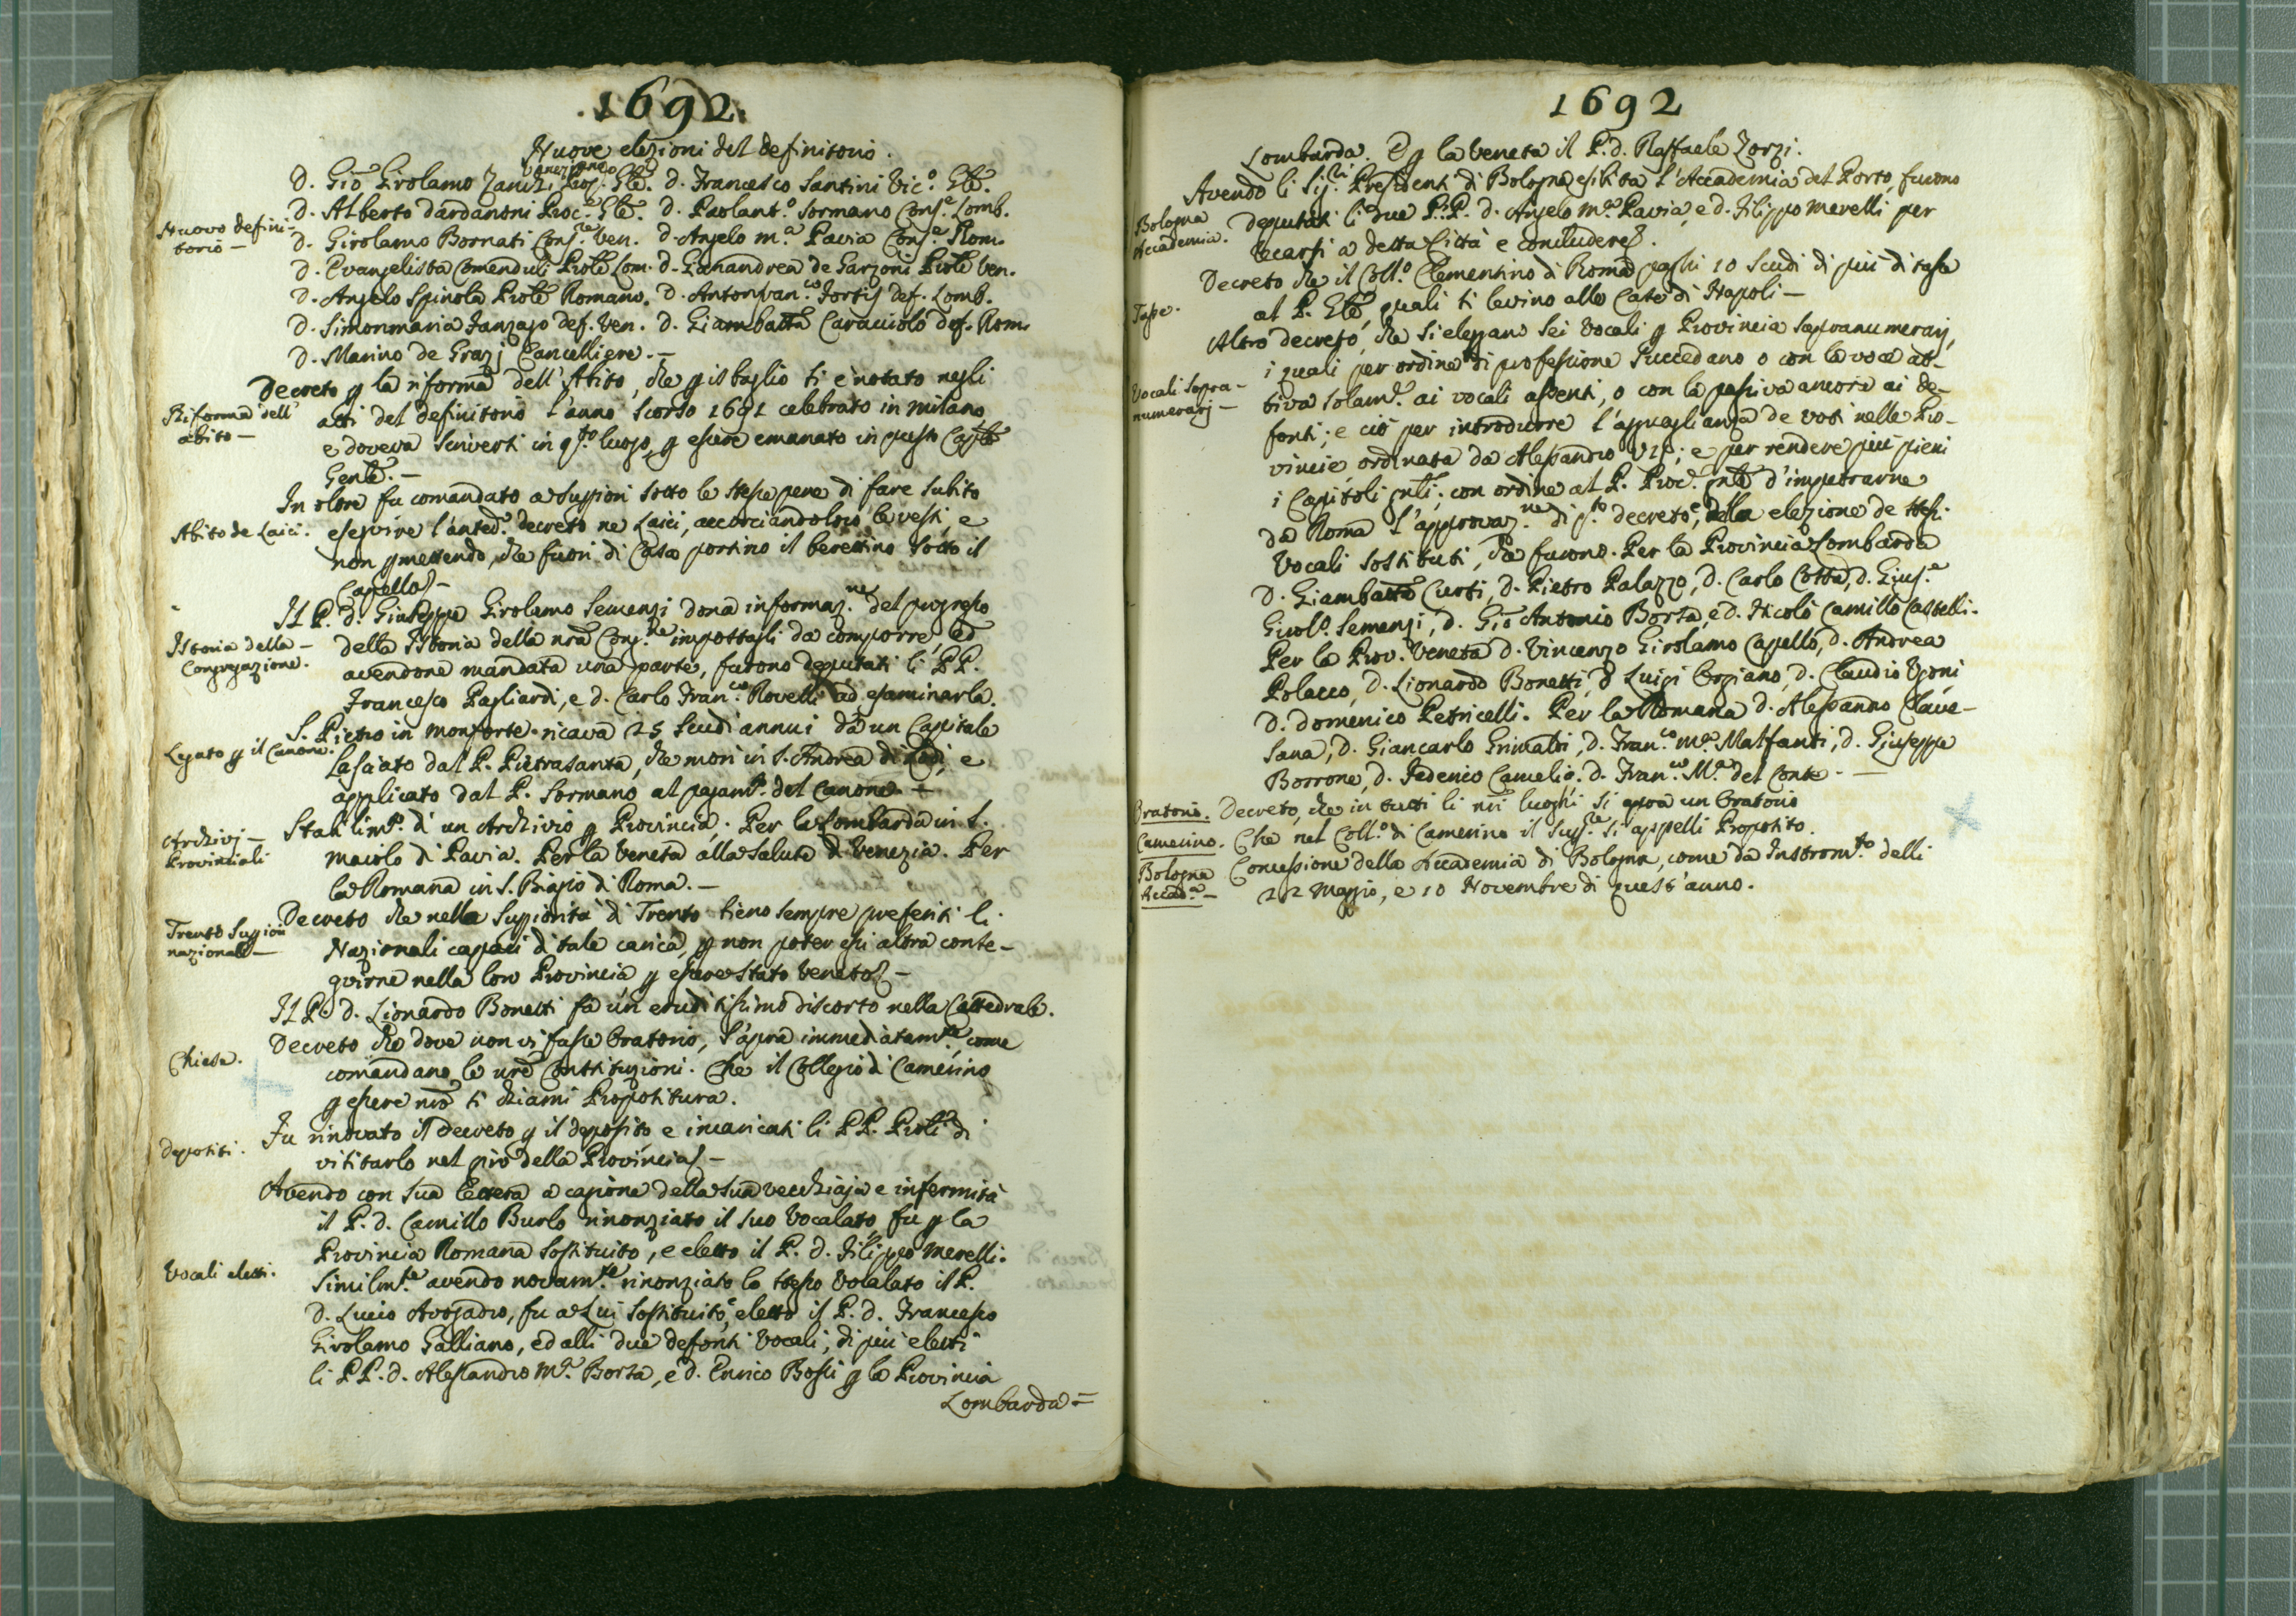 1692.
Nuove elezioni del definitorio.
Veneziano
D. Gio Girolamo Zanchi Prep. Gle. D. Francesco Santini Vic.o Gle.
Nuovo defini-
torio -
D. Alberto Dardanoni Proc.e Gle. D. Paolant.o Sormano Cons.e Lomb.
D. Girolamo Bornati Cons.re Ven. D. Angelo M.a Pavia Cons.e Rom.
D. Evangelista Comenduli Prole Lom. D. Gianandrea de Garzoni Prole Ven.
D. Angelo Spinola Prole Romano. D. Antonfran.co Fortis def. Lomb.
D. Simonmaria Fanzago def. Ven. D. Giambatta Caracciolo def. Rom.
D. Marino de Grazj Cancelliere. -
Riforma dell'
abito -
Decreto p la riforma dell'Abito, che p isbaglio si è notato negli
atti del definitorio l'anno scorso 1691 celebrato in Milano
e doveva scriversi in q.to luogo, p essere emanato in questo Caplo
Genle. -
In oltre fu comandato a Suppiori sotto le stesse pene di fare subito
Abito de Laici.
eseguire l'anted.o decreto ne Laici, accorciandoloro le vesti, e
non pmettendo, che fuori di Casa portino il berettino sotto il
Capello -
Istoria della -
Congregazione.
Il P. D. Giuseppe Girolamo Semenzi dona informaz.ne del progresso
della Istoria della nra Cong.ne impostagli da comporre, ed
avendone mandata una parte, furono deputati li PP.
Francesco Pagliardi, e D. Carlo Fran.co Rovelli ad esaminarla.
Legato p il Canone.
S. Pietro in Monforte ricava 25 scudi annui da un Capitale
lasciato dal P. Pietrasanta, che morì in S. Andrea di Lodi, e
applicato dal P. Sormano al pagam.to del Canone. -
Archivj -
Provinciali
Stabilim.to di un Archivio p Provincia. Per la Lombarda in S.
Maiolo di Pavia. Per la Veneta alla Salute di Venezia. Per
la Romana in S. Biagio di Roma. -
Trento Suppiori
nazionali -
Decreto che nella Suppiorità di Trento sieno sempre preferiti li
Nazionali capaci di tale carica, p non poter essi altra conse-
guirne nella loro Provincia p essere Stato Veneto -
Il P. D. Lionardo Bonetti fa un eruditissimo discorso nella Cattedrale.
Chiese.
Decreto che dove non vi fosse Oratorio, s'apra immediatam.te, come
comandano le nre Constituzioni. Che il Collegio di Camerino
p essere nro si chiami Propositura.
Depositi.
Fu rinovato il decreto p il deposito e incaricati li PP. Proli di
visitarlo nel giro della Provincia -
Avendo con sua lettera a cagione della sua vecchiaja e infermità
il P. D. Camillo Burlo rinonziato il suo Vocalato, fu p la
Vocali eletti.
Provincia Romana sostituito, e eletto il P. D. Filippo Merelli.
Similm.te avendo novam.te rinonziato lo stesso Vocalato il P.
D. Lucio Avogadro, fu a Lui sostituito, e eletto il P. D. Francesco
Girolamo Galliano, ed alli due defonti Vocali, di più eletti
li PP. D. Alessandro M.a Borsa, e D. Enrico Bossi p la Provincia
Lombarda -
1692
Lombarda. E p la Veneta il P. D. Raffaele Zorzi.
Bologna
Accademia.
Avendo li Sig.ri Presidenti di Bologna esibita l'Accademia del Porto, furono
deputati li due P.P. D. Angelo M.a Pavia, e D. Filippo Merelli per
recarsi a detta Città e concludere.
Tasse.
Decreto che il Coll.o Clementino di Roma paghi 10 scudi di più di tasse
al P. Gle, quali si levino alle Case di Napoli -
Vocali sopra-
numerarj -
Altro decreto, che si eleggano sei Vocali p Provincia sopranumerarj,
i quali per ordine di professione succedano o con la voce at-
tiva solam.te ai vocali assenti, o con la passiva ancora ai de-
fonti; e ciò per introdurre l'agguaglianza de voti nelle Pro-
vincie, ordinata da Alessandro VII; e per rendere più pieni
i Capitoli gnli; con ordine al P. Proc.e gnle d'impetrarne
da Roma l'approvaz.ne di q.to decreto, e della elezione de stessi
Vocali sostituti, che furono. Per la Provincia Lombarda
D. Giambatta Curti, D. Pietro Palazzo, D. Carlo Cotta, D. Gius.e
Girol.o Semenzi, D. Gio Antonio Borsa, e D. Nicolò Camillo Castelli.
Per la Prov. Veneta D. Vincenzo Girolamo Capello, D. Andrea
Polacco, D. Lionardo Bonetti, D. Luigi Orgiano, D. Claudio Ugoni
D. Domenico Petricelli. Per la Romana D. Alessandro Clave-
sana, D. Giancarlo Grimaldi, D. Fran.co M.a Malfanti, D. Giuseppe
Borrone, D. Federico Camelio. D. Fran.co M.a del Conte. -
Oratorio. Decreto, che in tutti li nri luoghi si apra un Oratorio
Camerino. Che nel Coll.o di Camerino il Supp.re si appelli Proposito.
Bologna
Accad.a -
Concessione della Accademia di Bologna, come da Instrom.to delli
22 Maggio, e 10 Novembre di quest'anno.